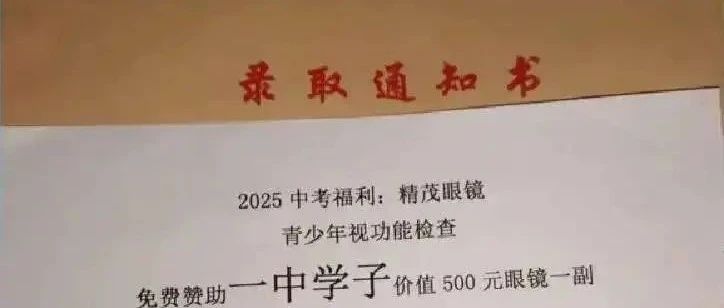 录取通知书
2025中考福利：精茂眼镜
青少年视功能检查
免费赞助一中学子价值500元眼镜一副